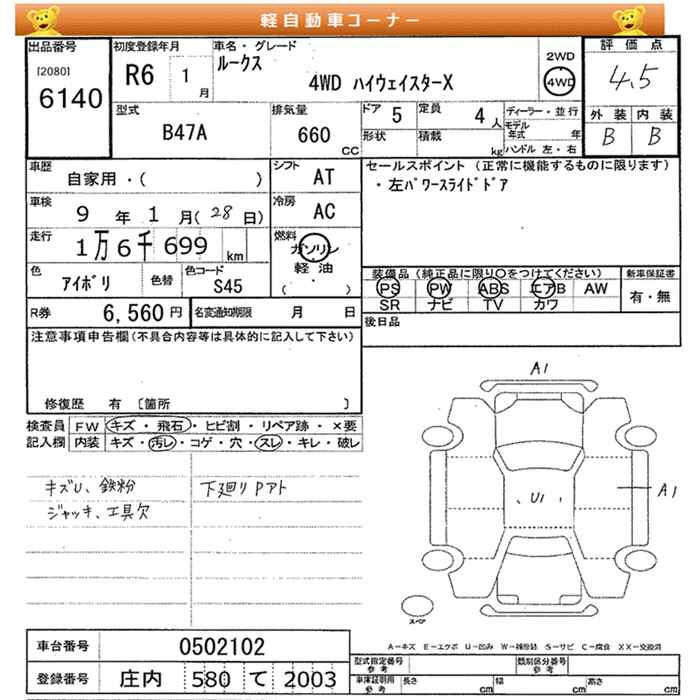 軽自動車コーナー
出品番号
[2080]
6140
初度登録年月
R6 1 月
車名・グレード
ルークス
4WD ハイウェイスターX
2WD
4WD
評価点
4.5
外装 内装
B B
型式
B47A
排気量
660 CC
ドア 5
定員 4 人
形状
積載 kg
ディーラー・並行
モデル年式 年
ハンドル 左・右
車歴
自家用・( )
シフト
AT
セールスポイント (正常に機能するものに限ります)
・左パワースライドドア
車検
9 年 1 月(28日)
冷房
AC
走行
1万6千699 km
燃料
ガソリン
軽油
・
( )
色
アイボリ
色替
色コード
S45
装備品(純正品に限り○をつけてください)
PS PW ABS エアB AW
SR ナビ TV カワ
新車保証書
有・無
R券 6,560 円
名変通知期限 月 日
後日品
注意事項申告欄(不具合内容等は具体的に記入して下さい)
修復歴 有 〔箇所 〕
検査員記入欄
FW キズ・飛石・ヒビ割・リペア跡・×要
内装 キズ・汚レ・コゲ・穴・スレ・キレ・破レ
キズU、鉄粉
ジャッキ、工具欠
下廻りPアト
A1
U1
A1
スペア
A−キズ E−エクボ U−凹み W−補修跡 S−サビ C−腐食 XX−交換済
車台番号 0502102
登録番号 庄内 580 て 2003
型式指定番号 参考
類別区分番号 参考
車庫証明用 参考
長さ cm
幅 cm
高さ cm